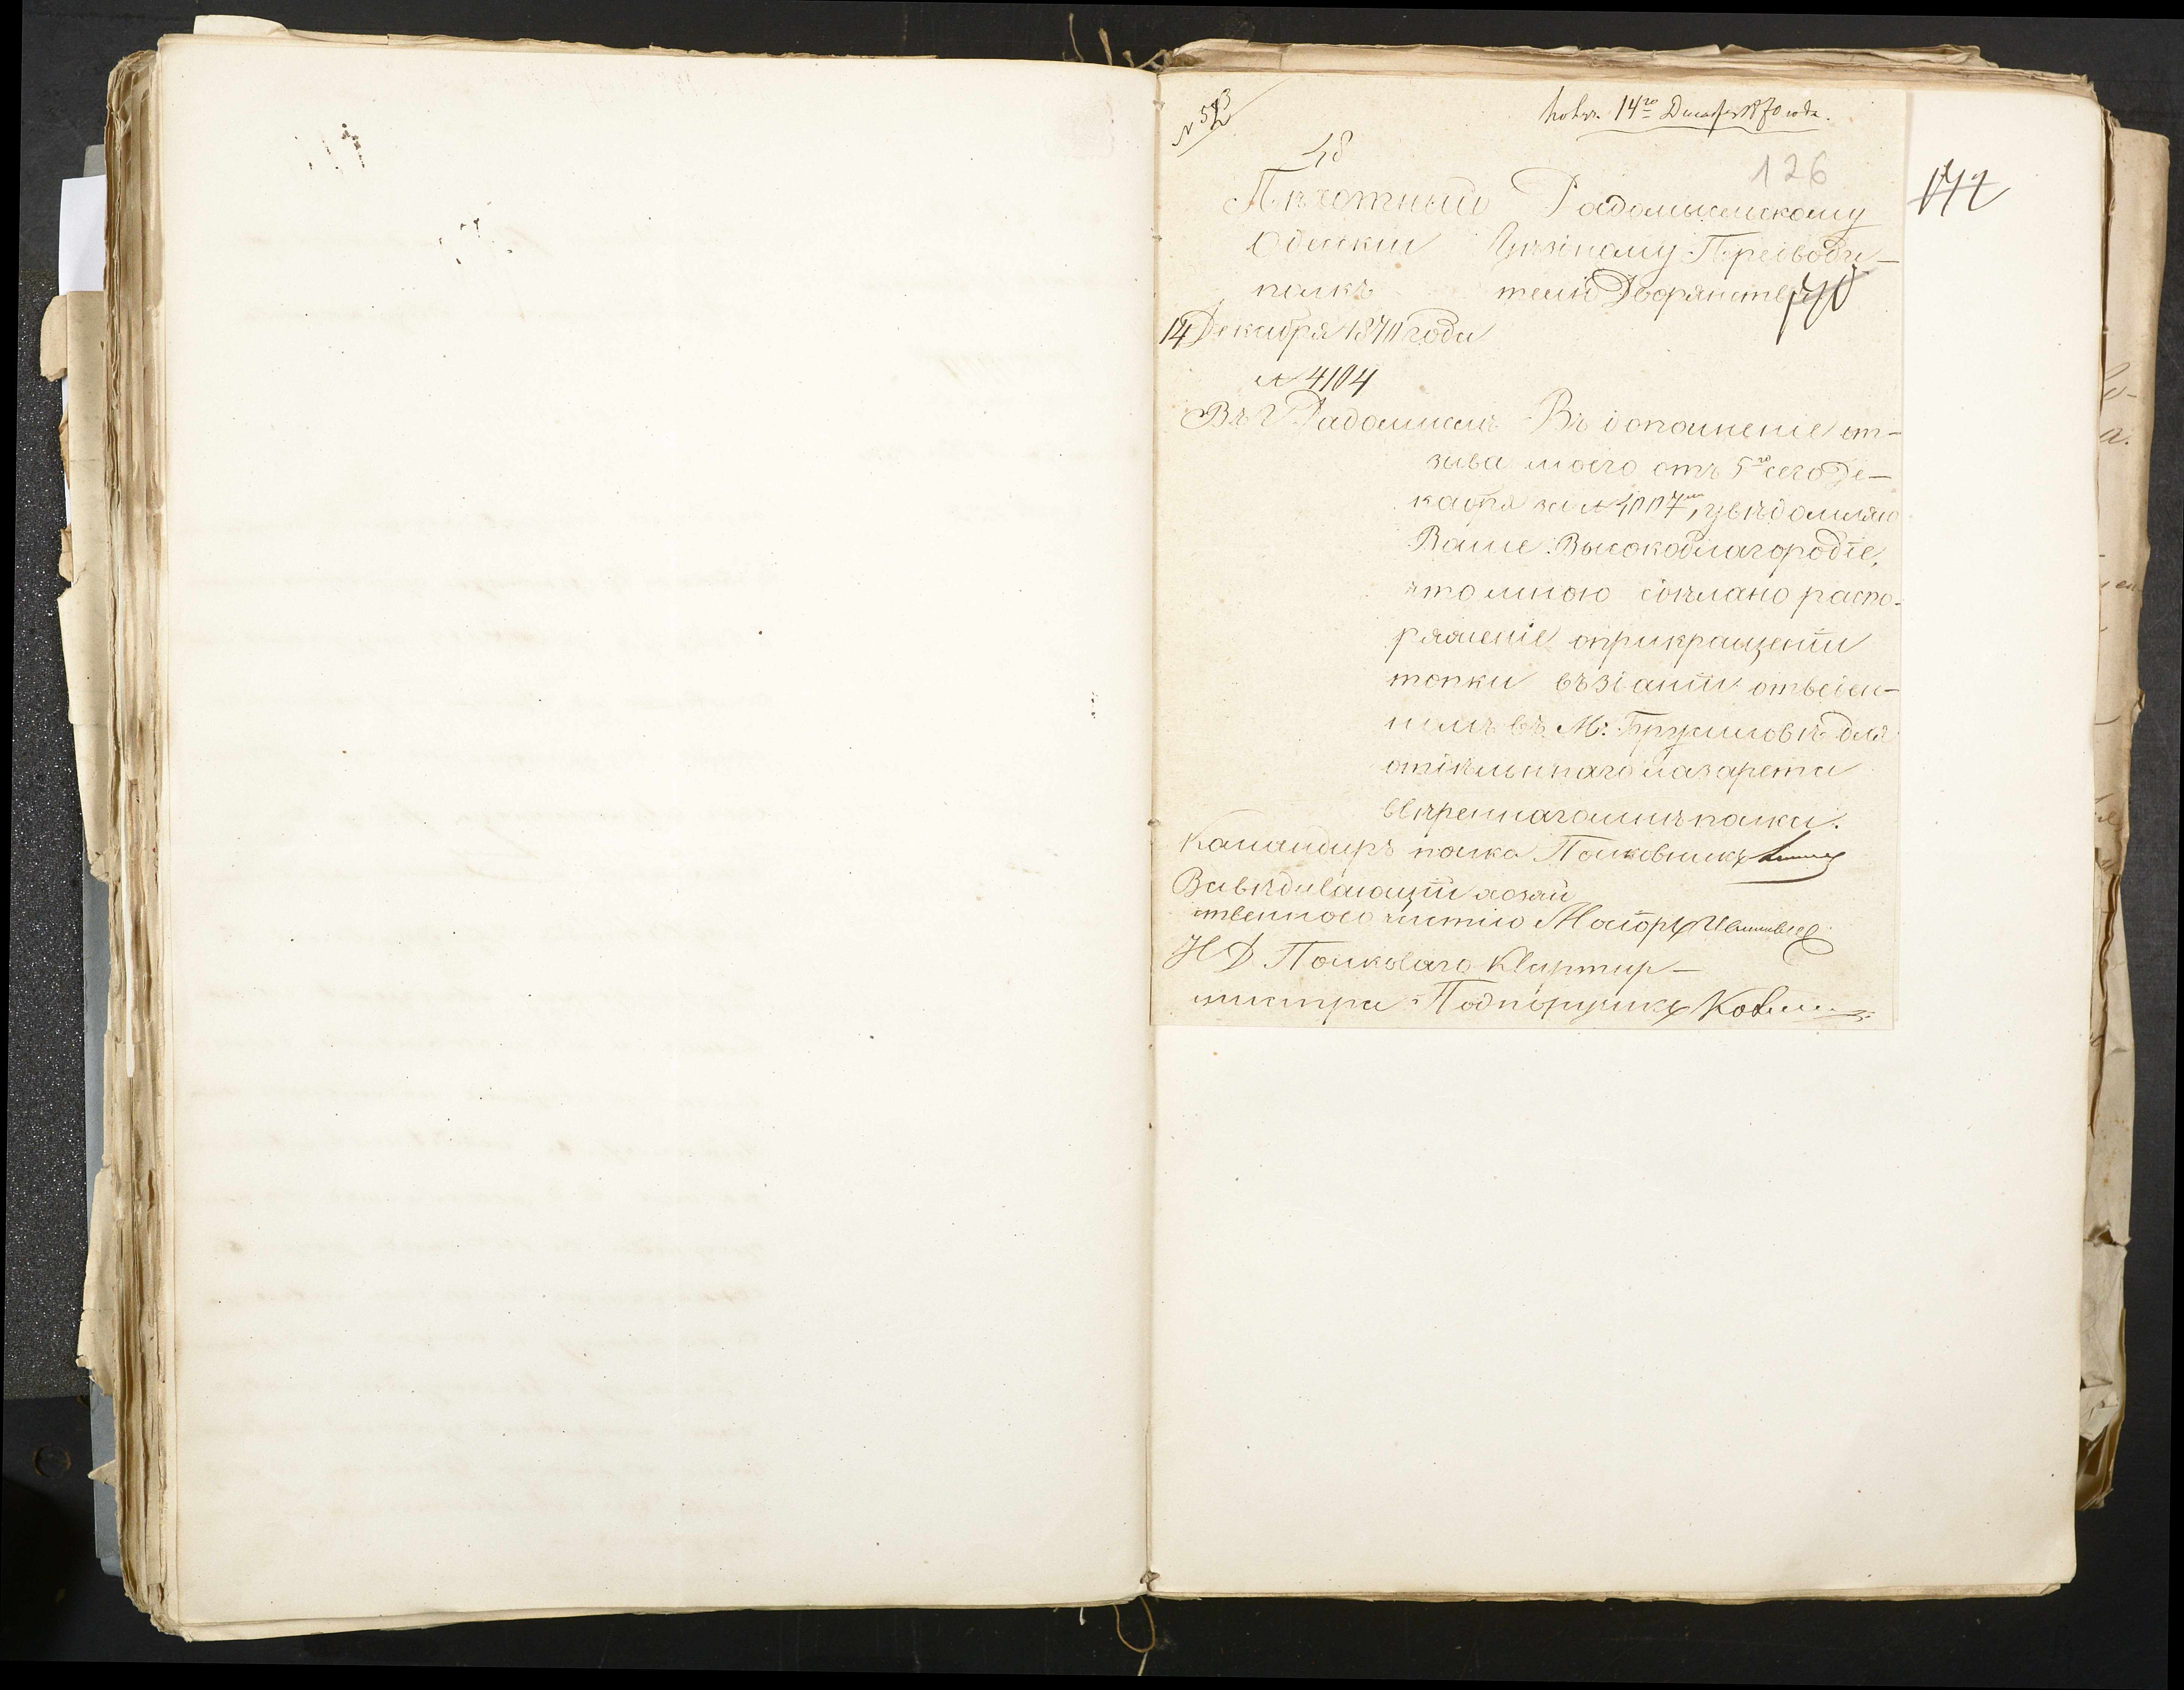 получ. 14го Декабря 1870 года.
126
48
Пѣхотный
Одескій
полкъ
14 Декабря 1870 года
№ 4104
Въ г. Радомыслѣ
Радомысльскому
Уѣздному Предводи-
телю Дворянства
Въ дополненіе от-
зыва моего отъ 5го сего Де-
кабря за № 4007мъ, увѣдомляю
Ваше Высокоблагородіе,
что мною сдѣлано распо-
ряженіе о прикращеніи
топки въ зданіи отведен-
номъ въ М: Брусиловѣ для
отдѣльнаго лазарета
ввѣреннаго мнѣ полка.
Командиръ полка Полковникъ
Завѣдывающій хозяй
ственною частію Маіоръ
И Д Полковаго Квартир-
мистра Подпоручикъ